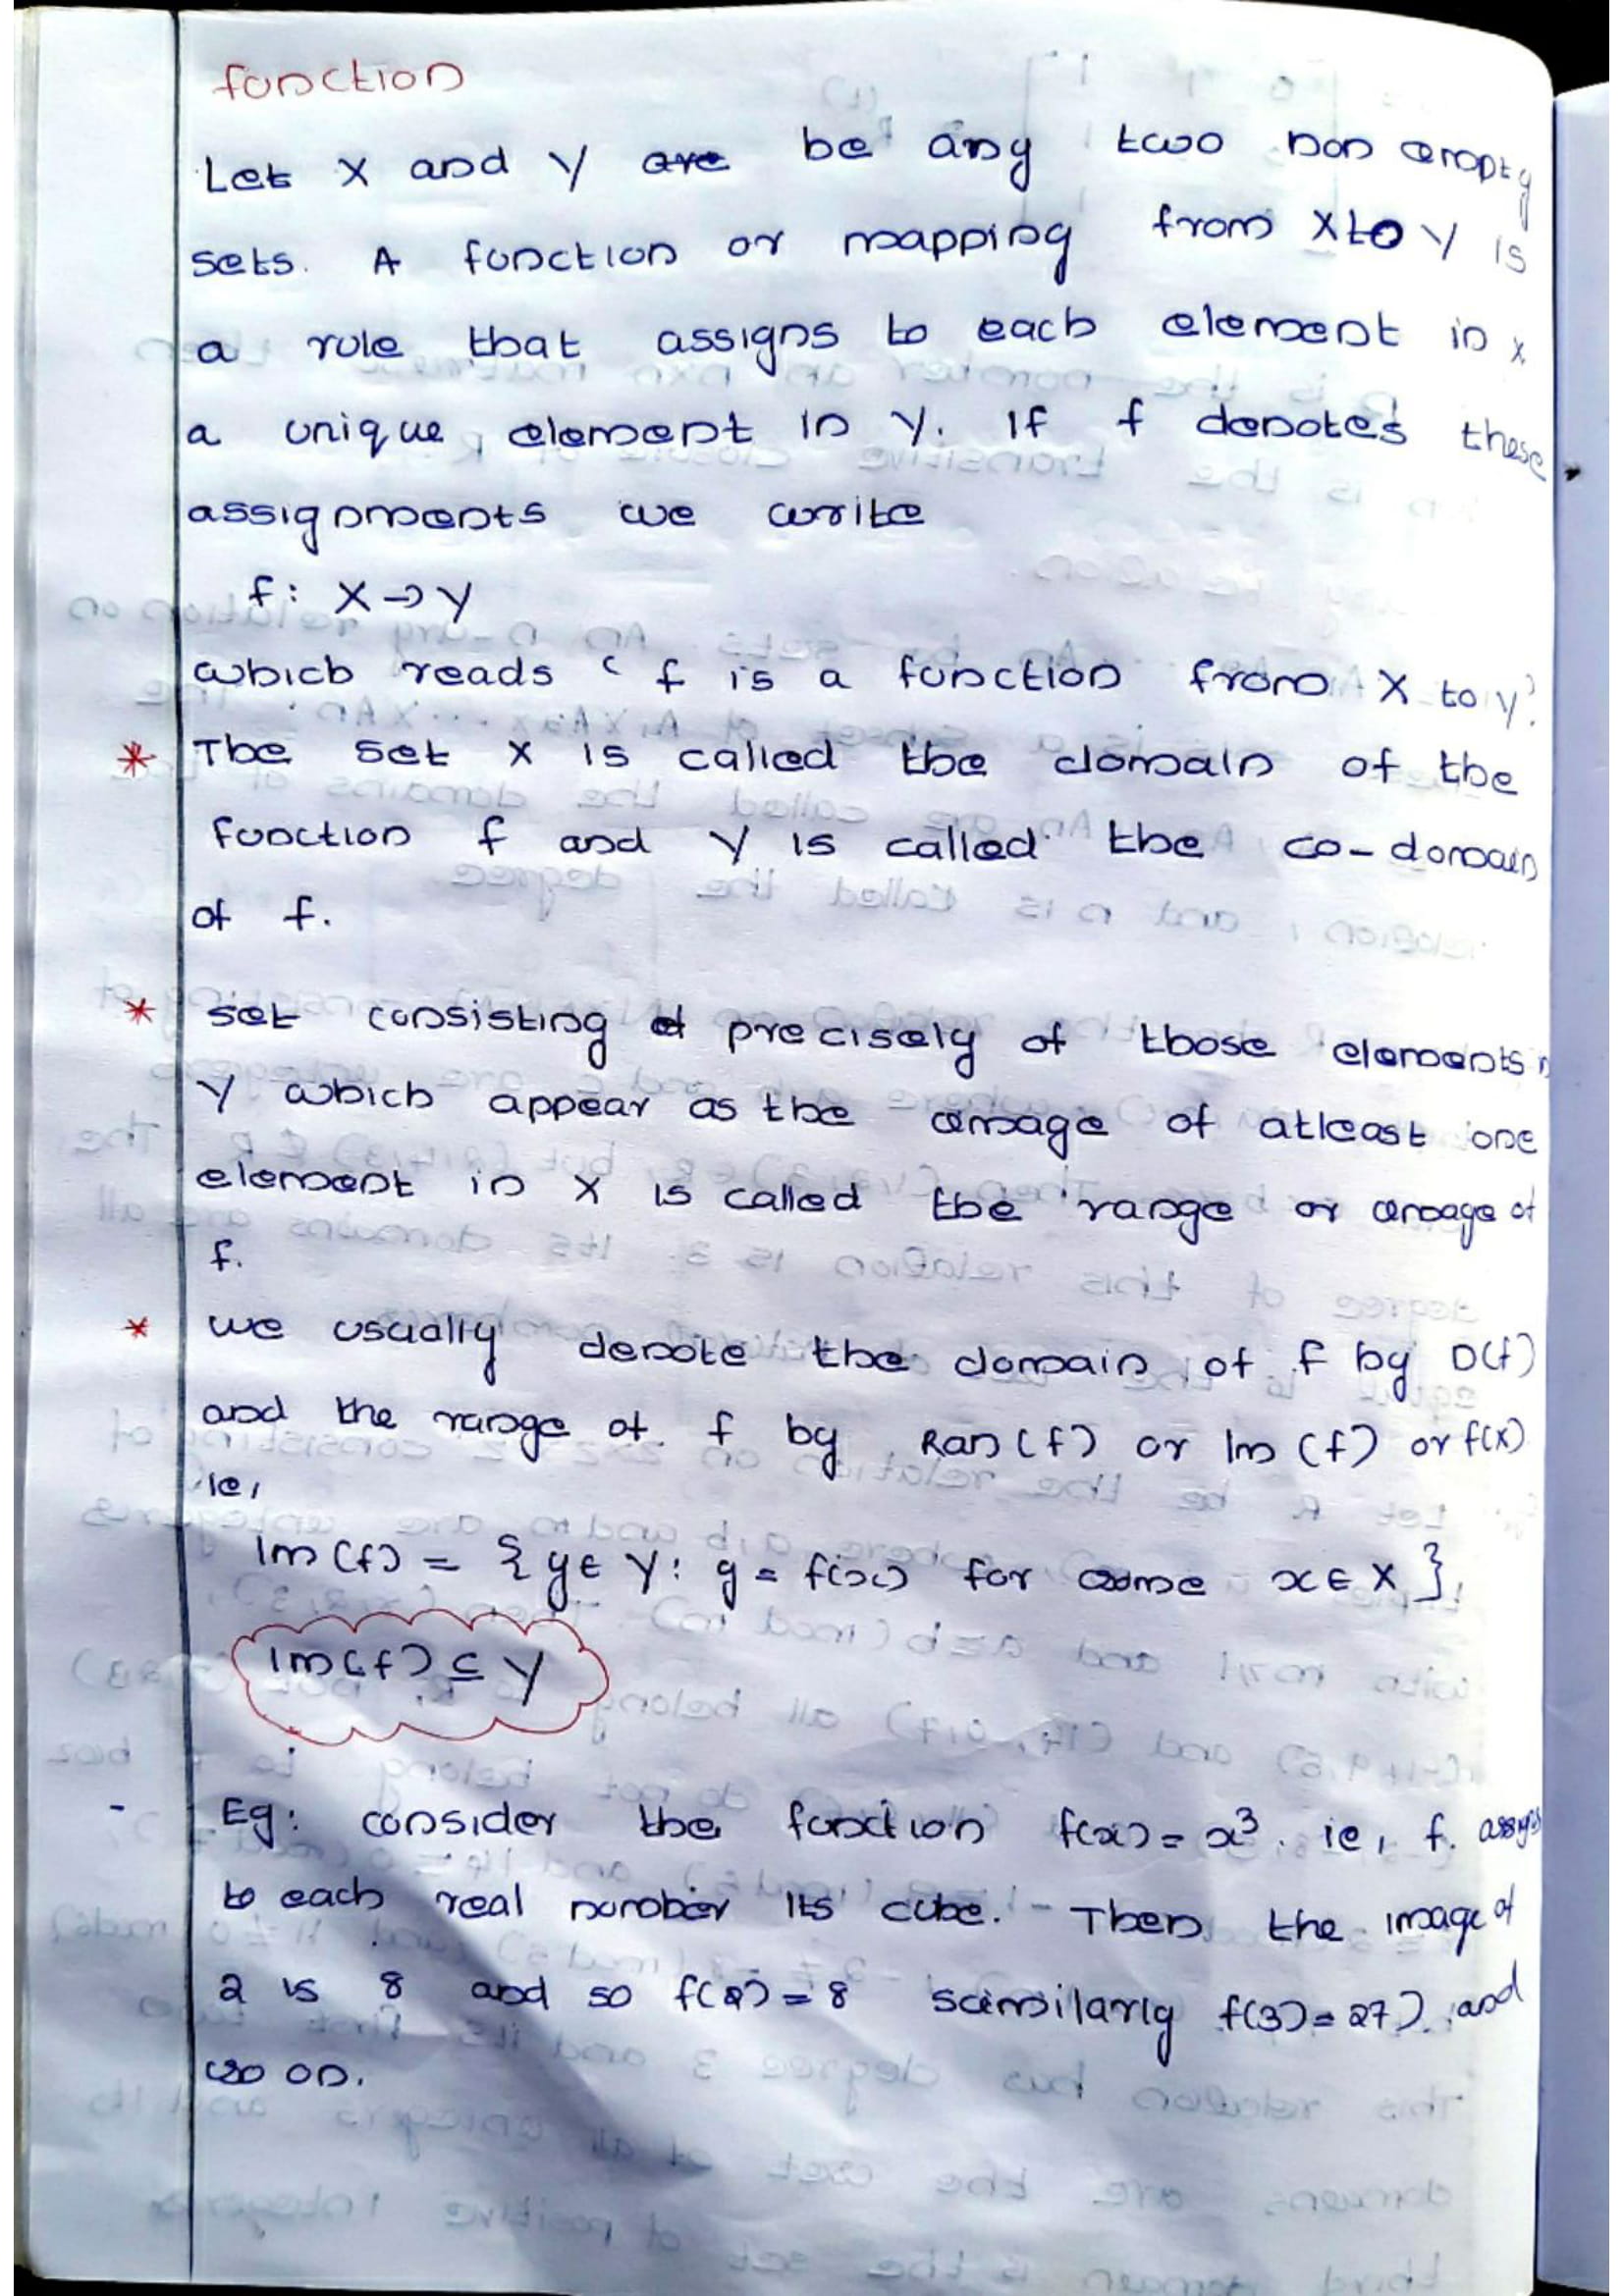 function
Let X and Y are be any two non empty
sets. A function or mapping from X to Y is
a rule that assigns to each element in X
a unique element in Y. If f denotes these
assignments we write
f: X → Y
which reads ‘f is a function from X to Y’.
* The set X is called the domain of the
function f and Y is called the co-domain
of f.
* set consisting of precisely of those elements in
Y which appear as the image of atleast one
element in X is called the range or image of
f.
* we usually denote the domain of f by D(f)
and the range of f by Ran(f) or Im(f) or f(X)
ie,
Im(f) = {y ∈ Y: y = f(x) for some x ∈ X}
Im(f) ⊆ Y
- Eg: consider the function f(x) = x³. ie, f. assigns
to each real number its cube. Then the image of
2 is 8 and so f(2) = 8 similarly f(3) = 27). and
so on.